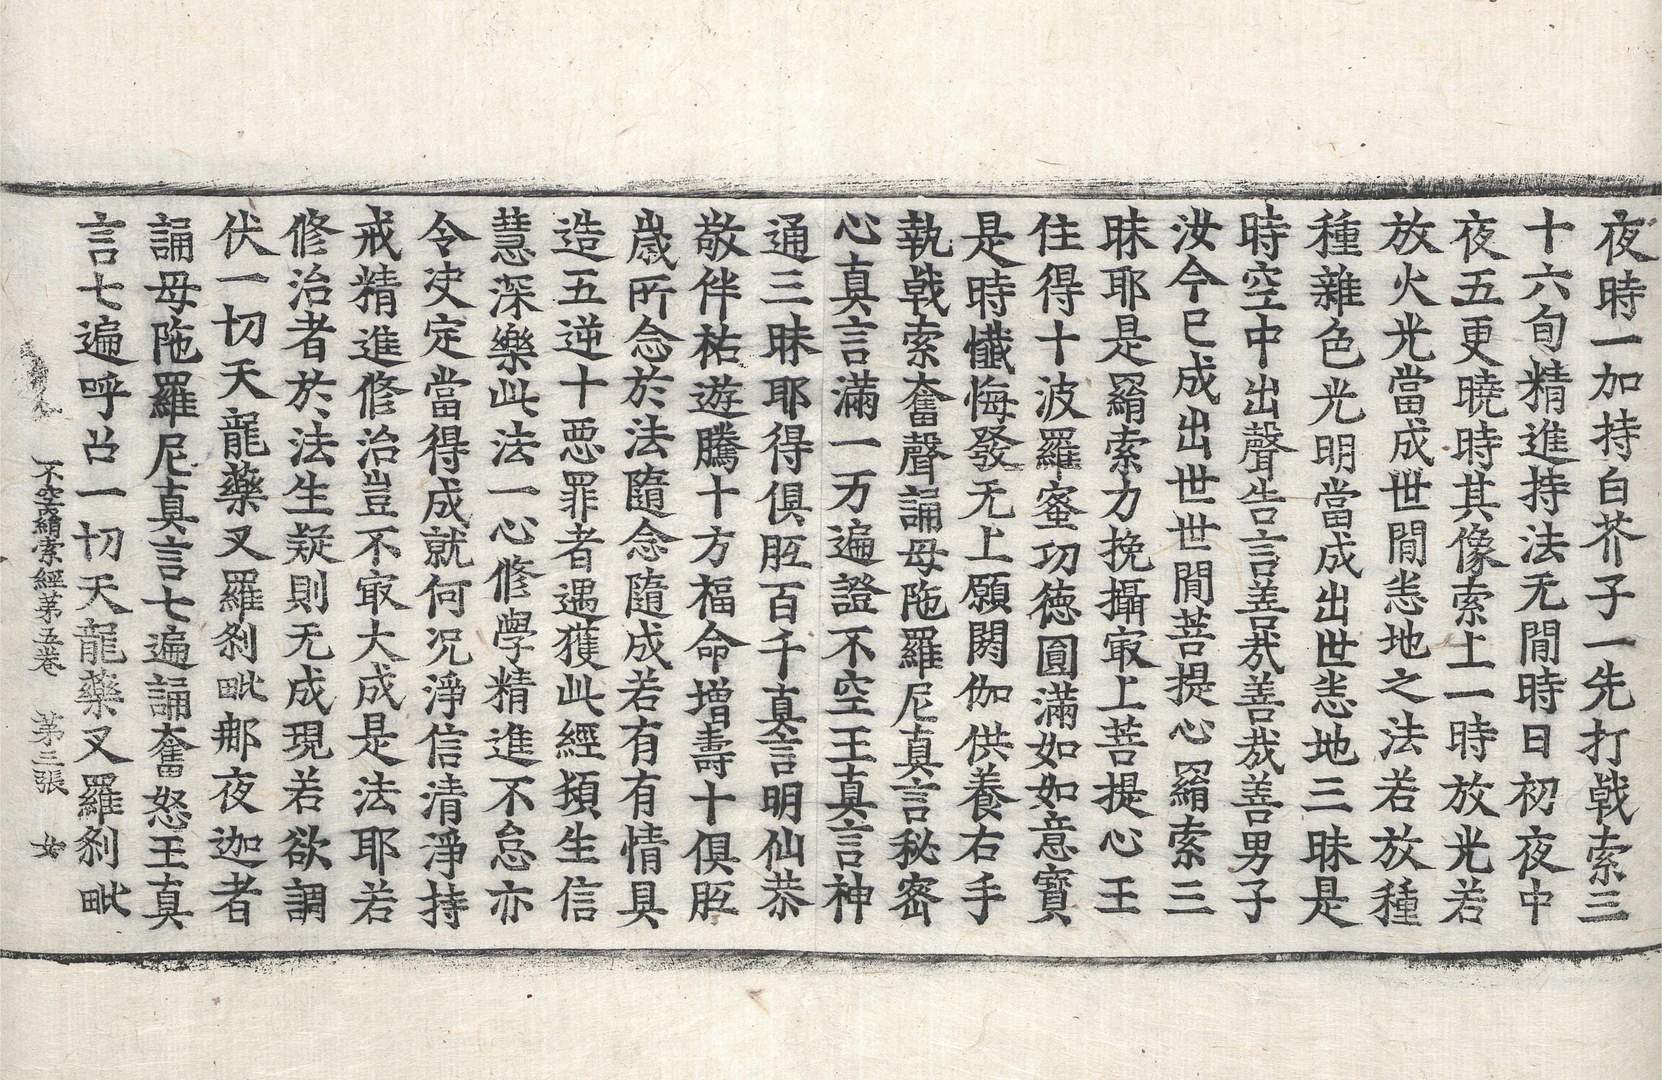 夜時一加持白芥子一先打戟索三
十六旬精進持法无間時日初夜中
夜五更曉時其像索上一時放光若
放火光當成世間悉地之法若放種
種雜色光明當成出世悉地三昧是
時空中出聲告言善哉善哉善男子
汝今已成出世世間菩提心羂索三
昧耶是羂索力挽攝㝡上菩提心王
住得十波羅蜜功德圓滿如如意寶
是時懺悔發无上願閼伽供養右手
執戟索奮聲誦母陁羅尼真言秘密
心真言滿一万遍證不空王真言神
通三昧耶得俱胝百千真言明仙恭
敬伴祐遊騰十方福命增壽十俱胝
歲所念於法隨念隨成若有有情具
造五逆十惡罪者遇獲此經頻生信
慧深樂此法一心修學精進不怠亦
令决定當得成就何况淨信清淨持
戒精進修治豈不㝡大成是法耶若
修治者於法生疑則无成現若欲調
伏一切天龍藥叉羅剎毗那夜迦者
誦母陁羅尼真言七遍誦奮怒王真
言七遍呼召一切天龍藥叉羅剎毗
不空羂索經第五卷 第三張 女